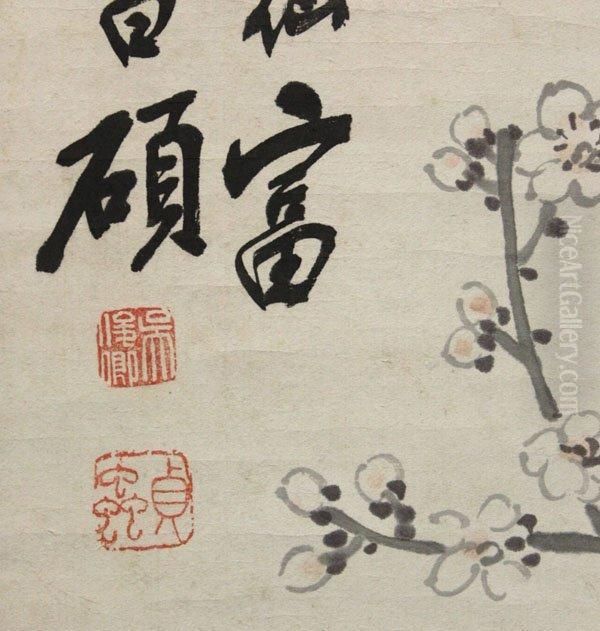 富
碩
吳俊卿
貞蟲
NiceArtGallery.com